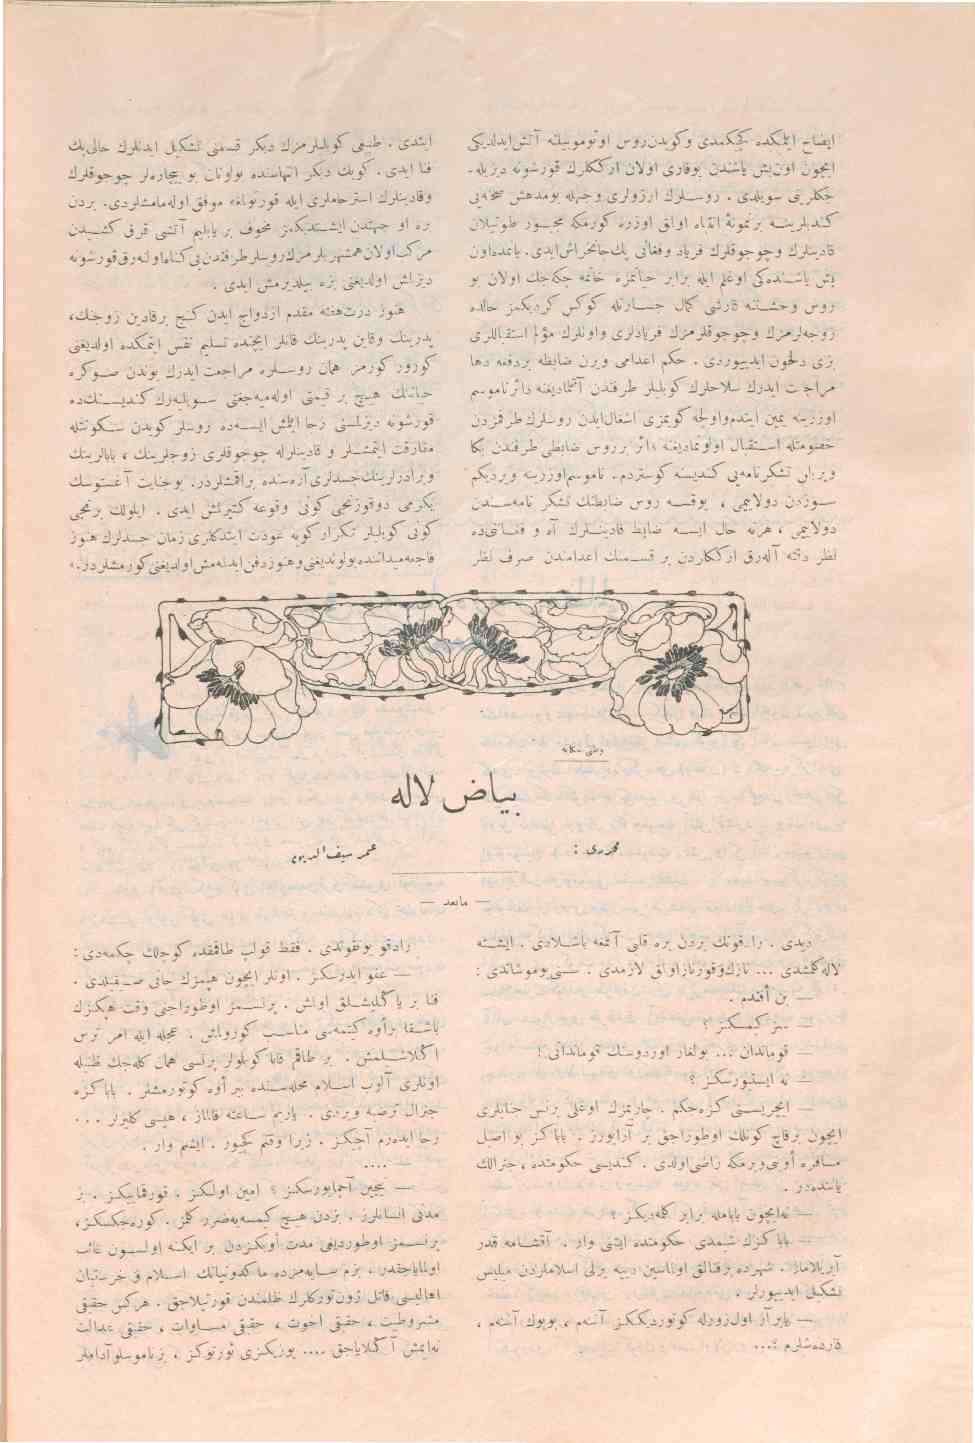 ایضاح ایتمكده كچیكمدی و كویدن روس اوتوموبیلنه آتش ایدلدیكی
ایچون اون‌بش یاشندن یوقاری اولان ارككلرك قورشونه دیزیله‌-
جكلرینی سویلدی . روسلرك ارزولری وجهله بو مدهش صحنه‌یی
كندیلرینه بر نمونهٔ انتباه اولمق اوزره كورمكه مجبور طوتیلان
قادینلرك و چوجوقلرك فریاد و فغانی پك جانخراش ایدی . یانمده اون
بش یاشنده‌كی اوغلم ایله برابر حیاتمزه خاتمه چكه‌جك اولان بو
روس وحشتنه قارشی كمال جسارتله كوكس كردیكمز حالده
زوجه‌لرمزك و چوجوقلرمزك فریادلری و اونلرك مؤلم استقباللری
بزی دلخون ایدییوردی . حكم اعدامی ویرن ضابطه بر دفعه دها
مراجعت ایدرك سلاحلرك كویلیلر طرفندن آتلمادیغنه دائر ناموسم
اوزرینه یمین ایتدم و اولجه كویمزی اشغال ایدن روسلرك طرفمزدن
خصومتله استقبال اولونمادیغنه دائر بر روس ضابطی طرفندن بكا
ویریلن تشكرنامه‌یی كندیسنه كوستردم . ناموسم اوزرینه ویردیكم
سوزدن دولاییمی ، یوقسه روس ضابطنك تشكر نامه‌سندن
دولاییمی ، هر نه حال ایسه ضابط قادینلرك آه و فغاننی ده
نظر دقته آله‌رق ارككلردن بر قسمنك اعدامندن صرف نظر
ایتدی . طبیعی كویلیلرمزك دیكر قسمنی تشكیل ایدنلرك حالی پك
فنا ایدی . كویك دیكر انتهاسنده بولونان بو بیچاره‌لر چوجوقلرك
و قادینلرك استرحاملری ایله قورتولمغه موفق اوله‌مامشلردی . بردن
بره او جهتدن ایشیتدیكمز مخوف بر یایلیم آتشی قرق كشیدن
مركب اولان همشهریلرمزك روسلر طرفندن بی‌كناه اوله‌رق قورشونه
دیزلمش اولدیغنی بزه بیلدیرمش ایدی .
هنوز درت هفته مقدم ازدواج ایدن كنج بر قادین زوجنك ،
پدرینك و قاین پدرینك قانلر ایچنده تسلیم نفس ایتمكده اولدیغنی
كورور كورمز همان روسلره مراجعت ایدرك بوندن صوكره
حیاتنك هیچ بر قیمتی اوله‌میه‌جغنی سویلیه‌رك كندیسنك ده
قورشونه دیزلمسنی رجا ایلمش ایسه‌ده روسلر كویدن سكونتله
مفارقت ایتمشلر و قادینلرله چوجوقلری زوجلرینك ، بابالرینك
و برادرلرینك جسدلری آره‌سنده براقمشلردر . بو جنایت آغستوسك
یكرمی دوقوزنجی كونی وقوعه كتیرلمش ایدی . ایلولك برنجی
كونی كویلیلر تكرار كویه عودت ایتدكلری زمان جسدلرك هنوز
فاجعه میداننده بولوندیغنی و هنوز دفن ایدلمه‌مش اولدیغنی كورمشلردر .»
وطنی حكایه
بیاض لاله
محرری :
عمر سیف‌الدین
— مابعد —
دیدی . رادقونك بردن بره قلبی آتمغه باشلادی . ایشته
لاله كلمشدی ... نازك و قورناز اولمق لازمدی . سسنی یوموشاتدی :
— بن أفندم .
— سز كیمسكز ؟
— قوماندان ... بولغار اوردوسنك قوماندانی !
— نه ایستیورسكز ؟
— ایچریسنی كزه‌جكم . چاریمزك اوغلی پرنس حضرتلری
ایچون بر قاچ كونلك اوطوراجق یر آرایورز . باباكز بو اصل
مسافره أوینی ویرمكه راضی اولدی . كندیسی حكومتده ، جنرالك
یاننده‌در .
— نه ایچون بابامله برابر كلمه‌دیكز ؟
— باباكزك شیمدی حكومتده ایشی وار . آقشامه قدر
آیریلاماز . شهرده بر فنالق اولماسین دییه یرلی اسلاملردن میلیس
تشكیل ایدییورلر .
— یا بر آز اول زورله كوتوردیككز آننه‌م ، بویوك آننه‌م ،
قارده‌شلرم ؟...
رادقو بوتقوندی . فقط قولپ طاقمقده كوجلك چكمه‌دی :
— عفو ایدرسكز . اونلر ایچون هپمزك جانی صیقیلدی .
فنا بر یاكلیشلق اولمش . پرنسمز اوطوراجغی وقت هپكزك
باشقا بر أوه كیتمه‌سی مناسب كورولمش . عجله ایله امر ترس
آكلاشیلمش . بر طاقم قابا كویلولر پرنسی همان كله‌جك ظنیله
اونلری آلوب اسلام محله‌سنده بیر أوه كوتورمشلر . باباكزه
جنرال ترضیه ویردی . یاریم ساعته قالماز ، هپسی كلیرلر ...
رجا ایده‌رم آچیكز . زیرا وقتم كچیور . ایشم وار .
....
— نیچین آچمایورسكز ؟ امین اولكز ، قورقماییكز . بز
مدنی انسانلرز . بزدن هیچ كیمسه‌یه ضرر كلمز . كوره‌جكسكز ،
پرنسمز اوطوردیغی مدت أویكزدن بر ایكنه اولسون غائب
اولمایاجقدر . بزم سایه‌مزده ماكدونیانك اسلام و خرستیان
اهالیسی قاتل ژون توركلرك ظلمندن قورتیلاجق . هركس حقیقی
مشروطیت ، حقیقی اخوت ، حقیقی مساوات ، حقیقی عدالت
نه ایمش آكلایاجق .... یوزیكزی اورتوكز . بز ناموسلو آداملر